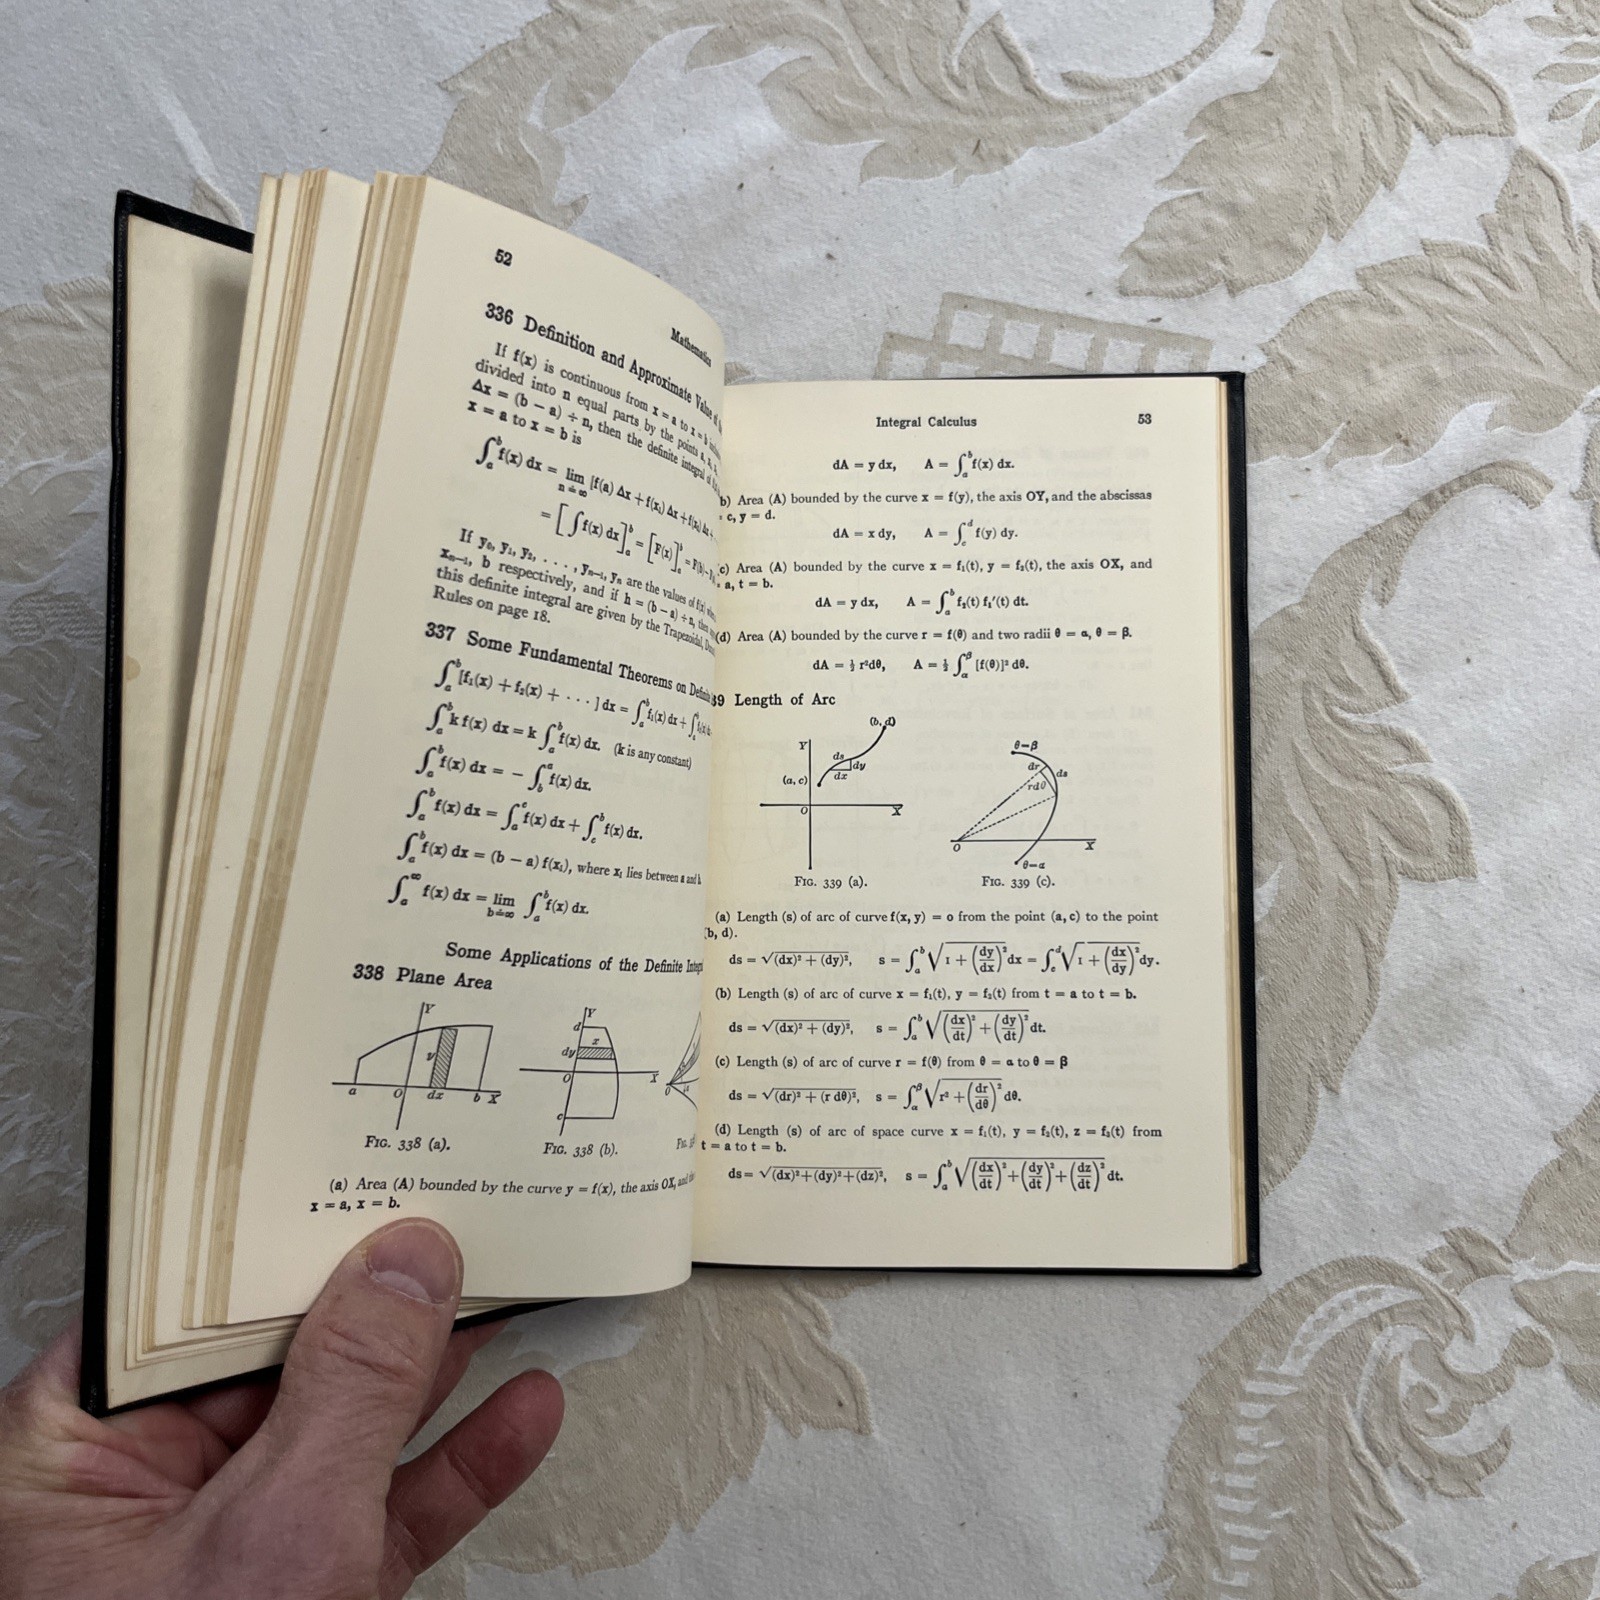 52
Mathematics
336 Definition and Approximate Value of
If f(x) is continuous from x = a to x = b
divided into n equal parts by the points a, x₁,
Δx = (b − a) ÷ n, then the definite integral of
x = a to x = b is
∫ₐᵇ f(x) dx = lim [f(a) Δx + f(x₁) Δx + f(x₂) Δx +
n ≐ ∞
= [∫ f(x) dx]ₐᵇ = [F(x)]ₐᵇ = F(b) −
If y₀, y₁, y₂, . . . , yₙ₋₁, yₙ are the values of f(x)
xₙ₋₁, b respectively, and if h = (b − a) ÷ n, then
this definite integral are given by the Trapezoidal,
Rules on page 18.
337 Some Fundamental Theorems on
∫ₐᵇ [f₁(x) + f₂(x) + · · · ] dx = ∫ₐᵇ f₁(x) dx + ∫ₐᵇ
∫ₐᵇ k f(x) dx = k ∫ₐᵇ f(x) dx. (k is any constant)
∫ₐᵇ f(x) dx = − ∫_b^a f(x) dx.
∫ₐᵇ f(x) dx = ∫_a^c f(x) dx + ∫_c^b f(x) dx.
∫ₐᵇ f(x) dx = (b − a) f(x₁), where x₁ lies between a and b
∫_a^∞ f(x) dx = lim ∫ₐᵇ f(x) dx.
b ≐ ∞
Some Applications of the Definite
338 Plane Area
Y
y
a O dx b X
FIG. 338 (a).
Y
d
x
dy
O X
c
FIG. 338 (b).
O
(a) Area (A) bounded by the curve y = f(x), the axis OX, and
x = a, x = b.
Integral Calculus 53
dA = y dx, A = ∫ₐᵇ f(x) dx.
b) Area (A) bounded by the curve x = f(y), the axis OY, and the abscissas
= c, y = d.
dA = x dy, A = ∫_c^d f(y) dy.
c) Area (A) bounded by the curve x = f₁(t), y = f₂(t), the axis OX, and
= a, t = b.
dA = y dx, A = ∫ₐᵇ f₂(t) f₁′(t) dt.
(d) Area (A) bounded by the curve r = f(θ) and two radii θ = α, θ = β.
dA = ½ r²dθ, A = ½ ∫_α^β [f(θ)]² dθ.
39 Length of Arc
(b, d)
Y
ds
dy
dx
(a, c)
O X
FIG. 339 (a).
θ=β
dr
ds
rdθ
O X
θ=α
FIG. 339 (c).
(a) Length (s) of arc of curve f(x, y) = 0 from the point (a, c) to the point
(b, d).
ds = √(dx)² + (dy)², s = ∫ₐᵇ √1 + (dy/dx)² dx = ∫_c^d √1 + (dx/dy)² dy.
(b) Length (s) of arc of curve x = f₁(t), y = f₂(t) from t = a to t = b.
ds = √(dx)² + (dy)², s = ∫ₐᵇ √(dx/dt)² + (dy/dt)² dt.
(c) Length (s) of arc of curve r = f(θ) from θ = α to θ = β
ds = √(dr)² + (r dθ)², s = ∫_α^β √r² + (dr/dθ)² dθ.
(d) Length (s) of arc of space curve x = f₁(t), y = f₂(t), z = f₃(t) from
t = a to t = b.
ds = √(dx)² + (dy)² + (dz)², s = ∫ₐᵇ √(dx/dt)² + (dy/dt)² + (dz/dt)² dt.